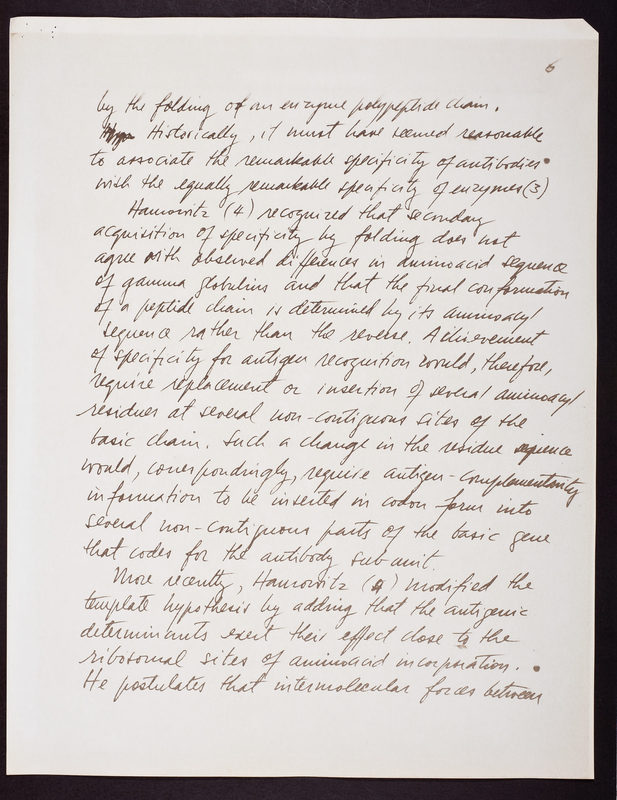 6
by the folding of an enzyme polypeptide chain.
Historically, it must have seemed reasonable
to associate the remarkable specificity of antibodies
with the equally remarkable specificity of enzymes (3)
Haurowitz (4) recognized that secondary
acquisition of specificity by folding does not
agree with observed differences in aminoacid sequence
of gamma globulins and that the final conformation
of a peptide chain is determined by its aminoacyl
sequence rather than the reverse. Achievement
of specificity for antigen recognition would, therefore,
require replacement or insertion of several aminoacyl
residues at several non-contiguous sites of the
basic chain. Such a change in the residue sequence
would, correspondingly, require antigen-complementarity
information to be inserted in codon form into
several non-contiguous parts of the basic gene
that codes for the antibody subunit.
More recently, Haurowitz (4) modified the
template hypothesis by adding that the antigenic
determinants exert their effect close to the
ribosomal sites of aminoacid incorporation.
He postulates that intermolecular forces between